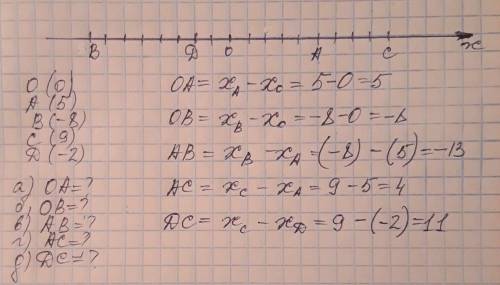 B Д O A C x
O (0) OA = x_A - x_O = 5-0=5
A (5)
B (-8) OB = x_B - x_O = -8-0=-8
C (9)
Д (-2) AB = x_B - x_A = (-8) - (5) = -13
а) OA=? AC = x_C - x_A = 9 - 5 = 4
б) OB=?
в) AB=? ДC = x_C - x_Д = 9 - (-2) = 11
г) AC=?
д) ДC=?